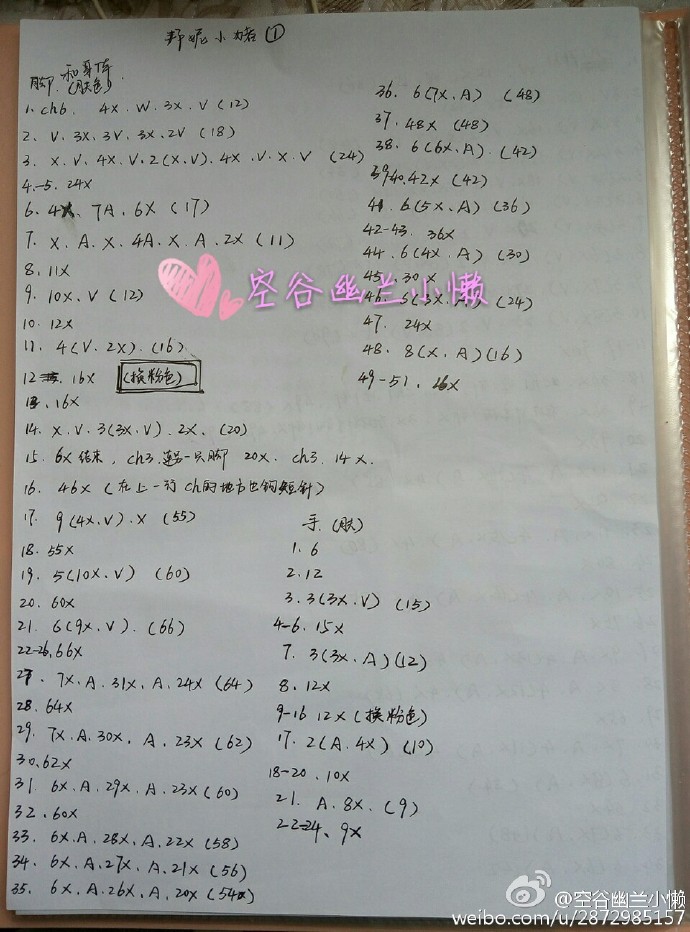 邦妮小猪①
脚和身体
(肤色)
1. ch6. 4X.W.3X.V (12)
2. V.3X.3V.3X.2V (18)
3. X.V.4X.V.2(X.V).4X.V.X.V (24)
4-5. 24X
6. 4X. 7A. 6X (17)
7. X.A.X.4A.X.A.2X (11)
8. 11X
9. 10X.V (12)
10. 12X
11. 4(V.2X).(16)
12. 16X (换粉色)
13. 16X
14. X.V.3(3X.V).2X. (20)
15. 6X结束, ch3.连另一只脚 20X. ch3. 14X.
16. 46X (在上一行ch的地方也钩短针)
17. 9(4X.V).X (55)
18. 55X
19. 5(10X.V) (60)
20. 60X
21. 6(9X.V). (66)
22-26. 66X
27. 7X.A.31X.A.24X (64)
28. 64X
29. 7X.A.30X. A. 23X (62)
30. 62X
31. 6X.A.29X.A.23X (60)
32. 60X
33. 6X.A.28X.A.22X (58)
34. 6X.A.27X.A.21X (56)
35. 6X.A.26X.A.20X (54)
36. 6(7X.A) (48)
37. 48X (48)
38. 6(6X.A). (42)
39.40. 42X (42)
41. 6(5X.A) (36)
42-43. 36X
44. 6(4X.A) (30)
45. 30X
46. 6(3X.A) (24)
47. 24X
48. 8(X.A)(16)
49-51. 16X
手.(肤)
1. 6
2. 12
3. 3(3X.V) (15)
4-6. 15X
7. 3(3X.A)(12)
8. 12X
9-16 12X (换粉色)
17. 2(A.4X) (10)
18-20. 10X
21. A.8X. (9)
22-24. 9X
空谷幽兰小懒
@空谷幽兰小懒
weibo.com/u/2872985157